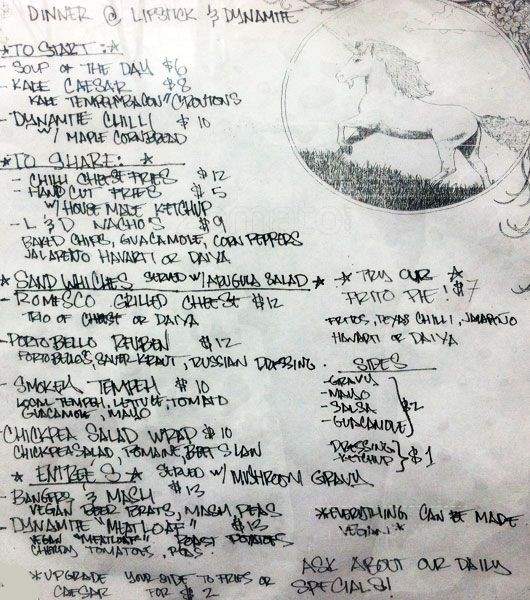 DINNER @ LIPSTICK & DYNAMITE
*TO START:*
- SOUP OF THE DAY $6
- KALE CAESAR $8
KALE TEMPEH"BACON" CROUTONS
- DYNAMITE CHILLI $10
W/ MAPLE CORNBREAD
*TO SHARE: *
- CHILLI CHEESE FRIES $12
- HAND CUT FRIES $5
W/ HOUSE MADE KETCHUP
- L & D NACHOS $9
BAKED CHIPS, GUACAMOLE, CORN PEPPERS
JALAPEÑO HAVARTI OR DAIYA
* SANDWHICHES SERVED W/ ARUGULA SALAD *
- ROMESCO GRILLED CHEESE $12
TRIO OF CHEESE OR DAIYA
- PORTOBELLO REUBEN $12
PORTOBELLOS, SAUERKRAUT, RUSSIAN DRESSING.
- SMOKEY TEMPEH $10
LOCAL TEMPEH, LETTUCE, TOMATO
GUACAMOLE, MAYO
- CHICKPEA SALAD WRAP $10
CHICKPEA SALAD, ROMAINE, BEET SLAW
* ENTREÉS * SERVED W/ MUSHROOM GRAVY
- BANGERS & MASH $13
VEGAN BEER BRATS, MASH, PEAS
- DYNAMITE "MEATLOAF" $13
VEGAN "MEATLOAF" ROAST POTATOES
CHERRY TOMATOES, PEAS.
*UPGRADE YOUR SIDE TO FRIES OR
CAESAR FOR $2
* TRY OUR *
FRITO PIE! $7
FRITOS, TEXAS CHILLI, JALAPEÑO
HAVARTI OR DAIYA
SIDES
- GRAVY
- MAYO
- SALSA
- GUACAMOLE
$2
DRESSING
- KETCHUP
$1
*EVERYTHING CAN BE MADE
VEGAN*
ASK ABOUT OUR DAILY
SPECIALS!